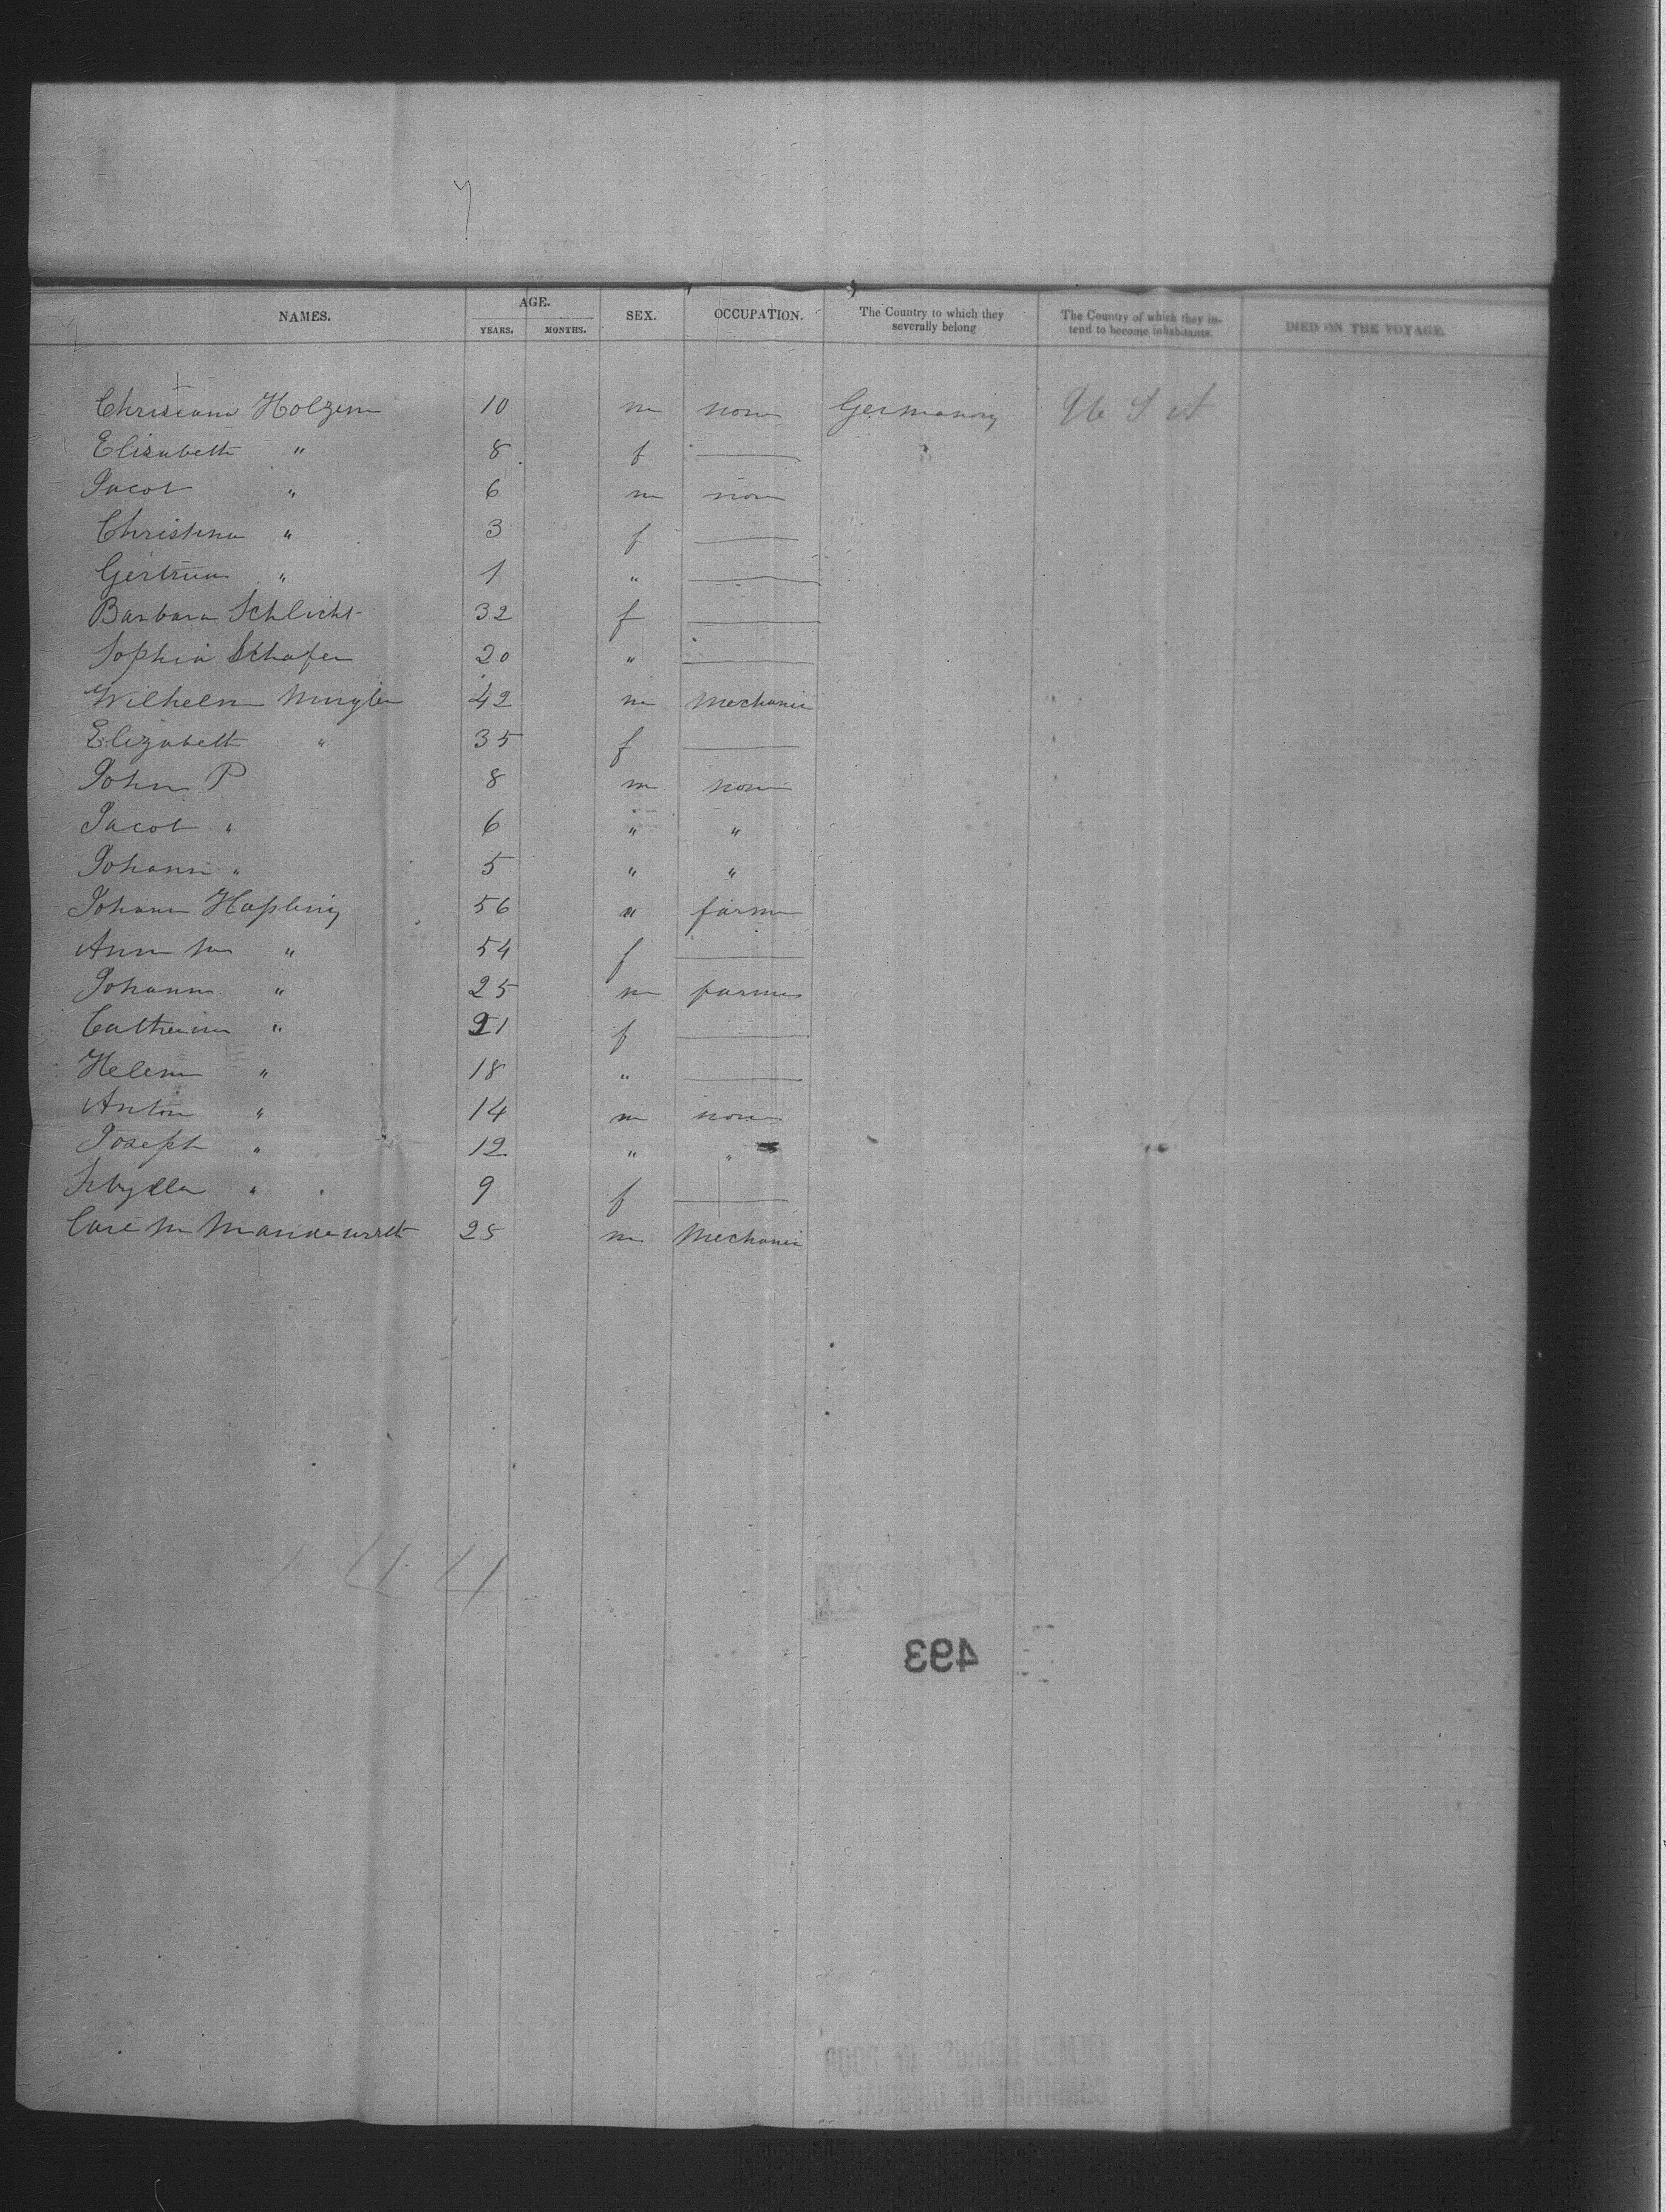 NAMES. AGE. YEARS. MONTHS. SEX. OCCUPATION. The Country to which they severally belong The Country of which they intend to become inhabitants. DIED ON THE VOYAGE.
Holzem 10 m none Germany U S A
Elisabeth " 8 f
Jacob " 6 m none
Christina " 3 f
Gertrua " 1 "
Barbara Schlicht 32 f
Sophia Schafer 20 "
Wilhelm 42 m Mechanic
Elizabeth " 35 f
John P 8 m none
Jacob " 6 " "
Johann " 5 " "
Johann 56 " farmer
Ann M " 54 f
Johann " 25 m farmer
Catherina " 21 f
Helena " 18 "
Anton " 14 m none
Joseph " 12 " "
Sibylla " 9 f
25 m Mechanic
144
493
FILMED BECAUSE OF POOR
CONDITION OF ORIGINAL